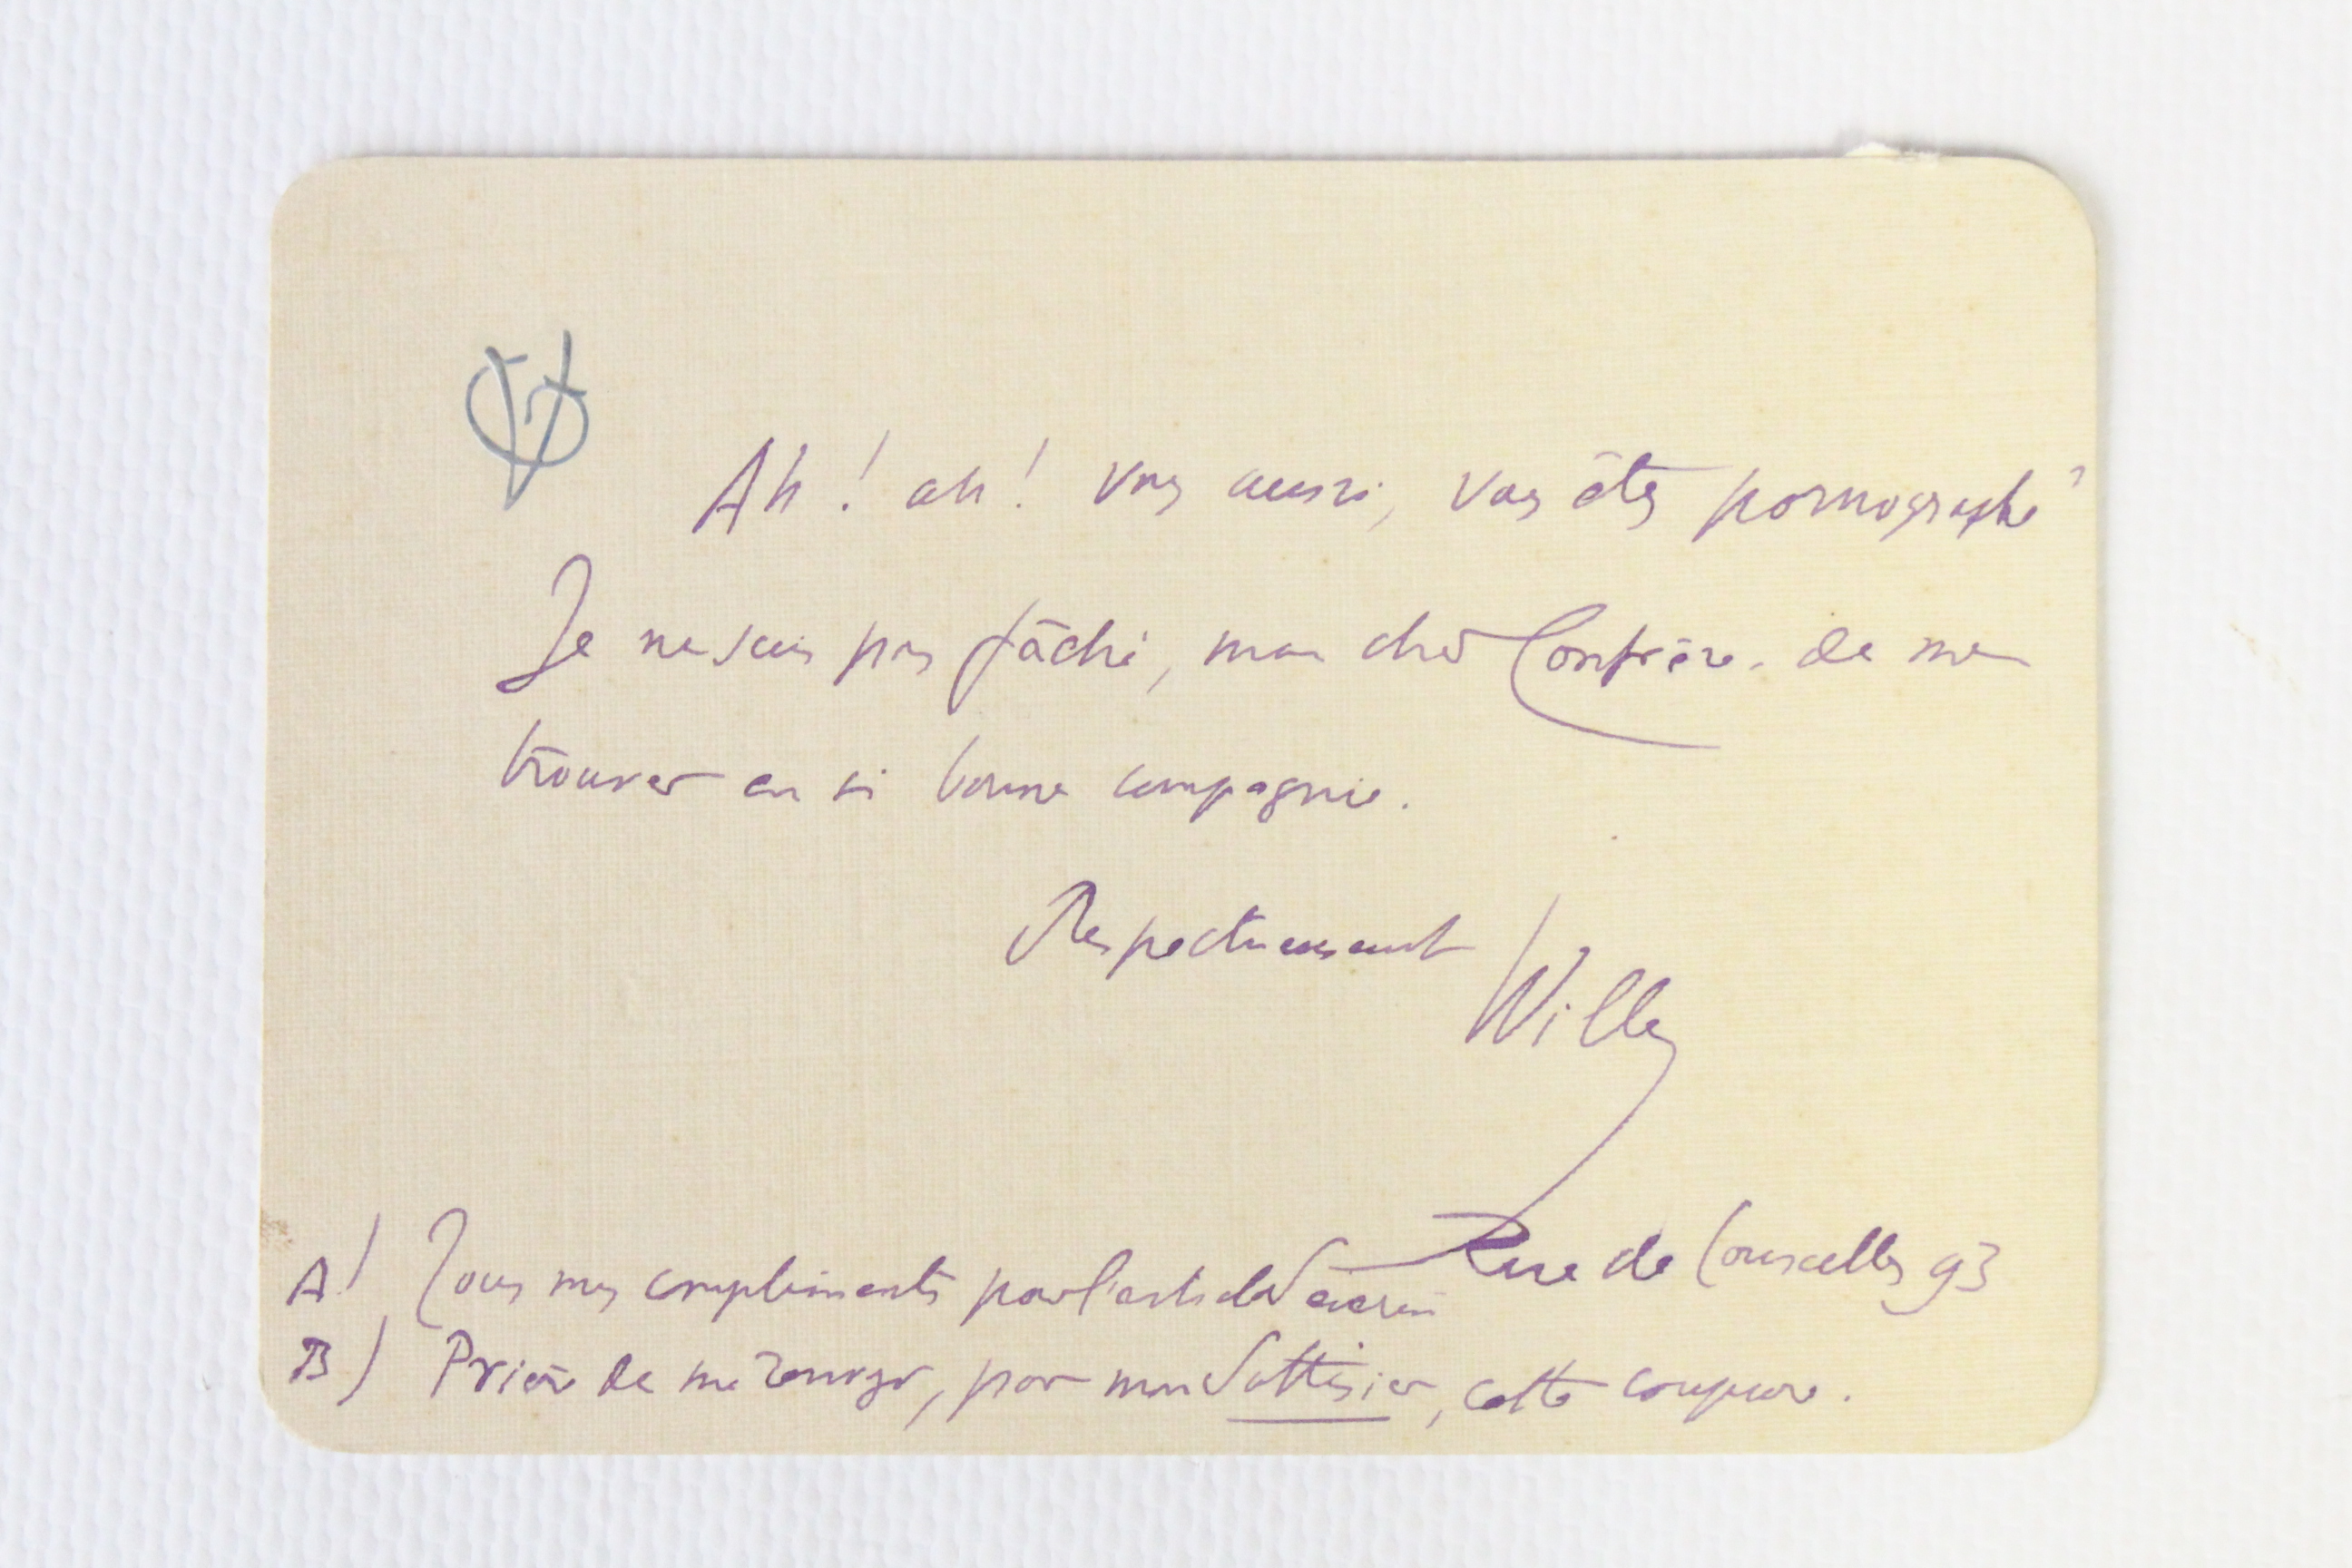 Ah ! ah ! vous aussi, vous êtes pornographe ?
Je ne suis pas fâché, mon cher Confrère, de me
trouver en si bonne compagnie.
Respectueusement
Willy
Rue de Courcelles 93
A) Tous mes compliments pour l'article
B) Prière de me renvoyer, pour mon Sottisier, cette coupure.